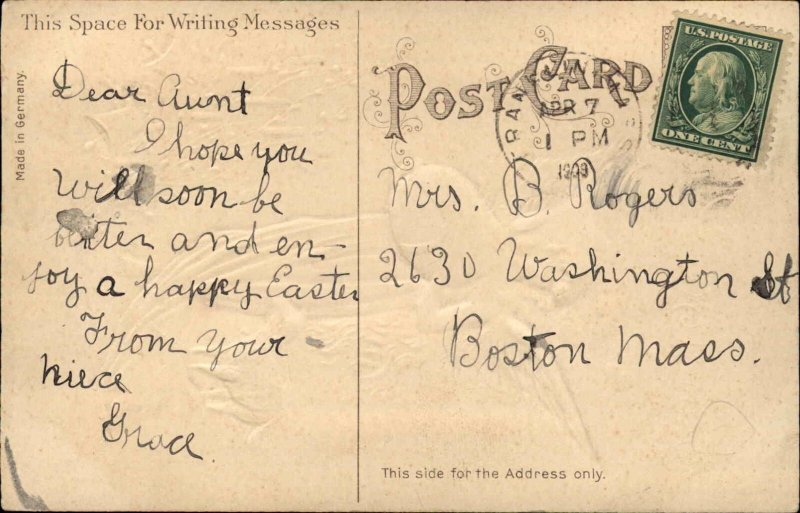 This Space For Writing Messages
Made in Germany.
Dear Aunt
I hope you
will soon be
better and en-
joy a happy Easter
From your
niece
Grace.
POST CARD
APR 7
1 PM
1909
U.S. POSTAGE
ONE CENT
Mrs. B. Rogers
2630 Washington St
Boston Mass.
This side for the Address only.